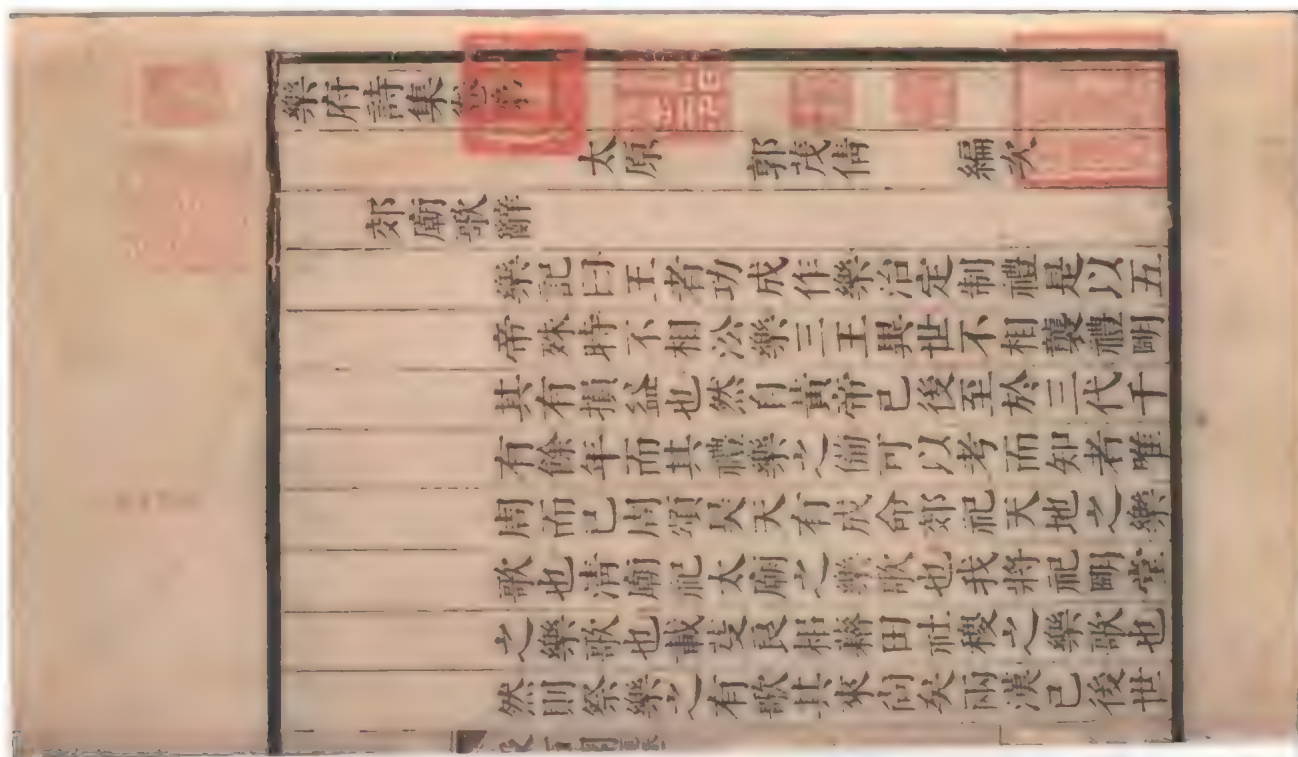 樂府詩集卷第
太原 郭茂倩 編次
郊廟歌辭
樂記曰王者功成作樂治定制禮是以五
帝殊時不相沿樂三王異世不相襲禮明
其有損益也然自黃帝已後至於三代千
有餘年而其禮樂之備可以考而知者唯
周而已周頌昊天有成命郊祀天地之樂
歌也清廟祀太廟之樂歌也我將祀明堂
之樂歌也載芟良耜藉田社稷之樂歌也
然則祭樂之有歌其來尚矣兩漢已後世